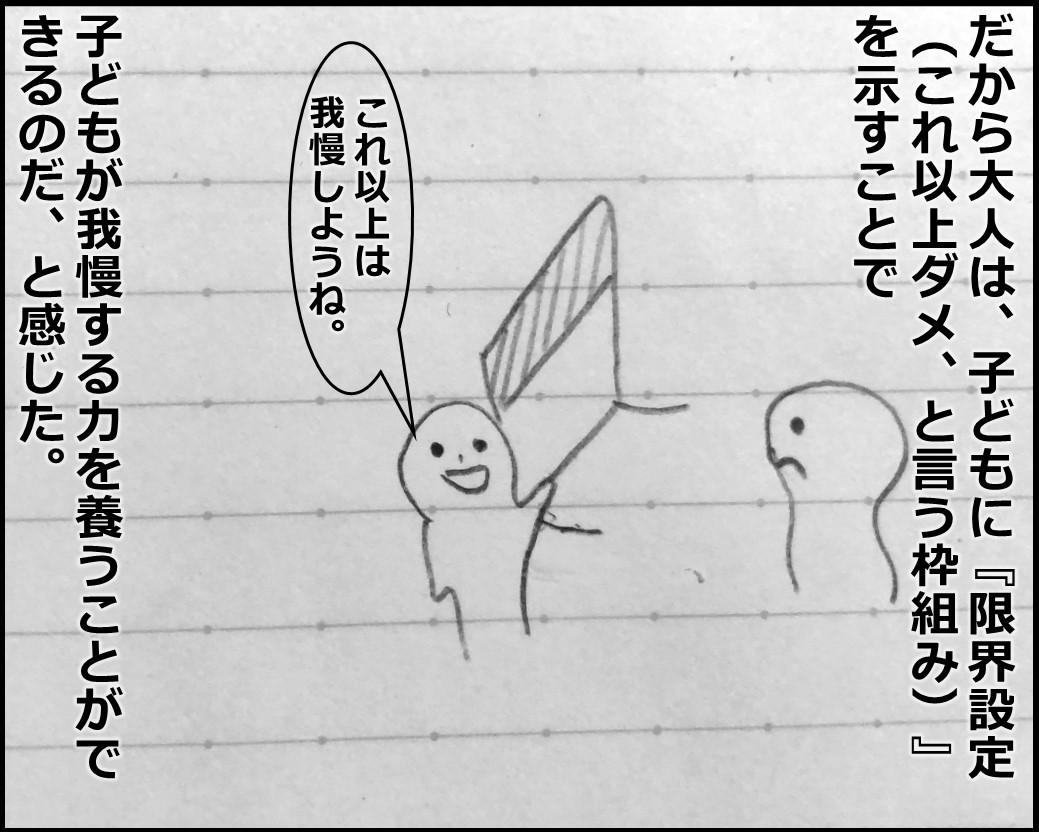 だから大人は、子どもに『限界設定
（これ以上ダメ、と言う枠組み）』
を示すことで
これ以上は
我慢しようね。
子どもが我慢する力を養うことがで
きるのだ、と感じた。